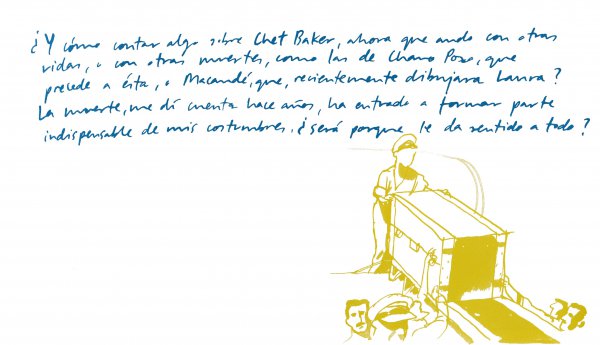 ¿Y cómo contar algo sobre Chet Baker, ahora que ando con otras
vidas, o con otras muertes, como las de Chano Pozo, que
precede a ésta, o Macandé, que, recientemente dibujara Laura?
La muerte, me dí cuenta hace años, ha entrado a formar parte
indispensable de mis costumbres. ¿será porque le da sentido a todo?